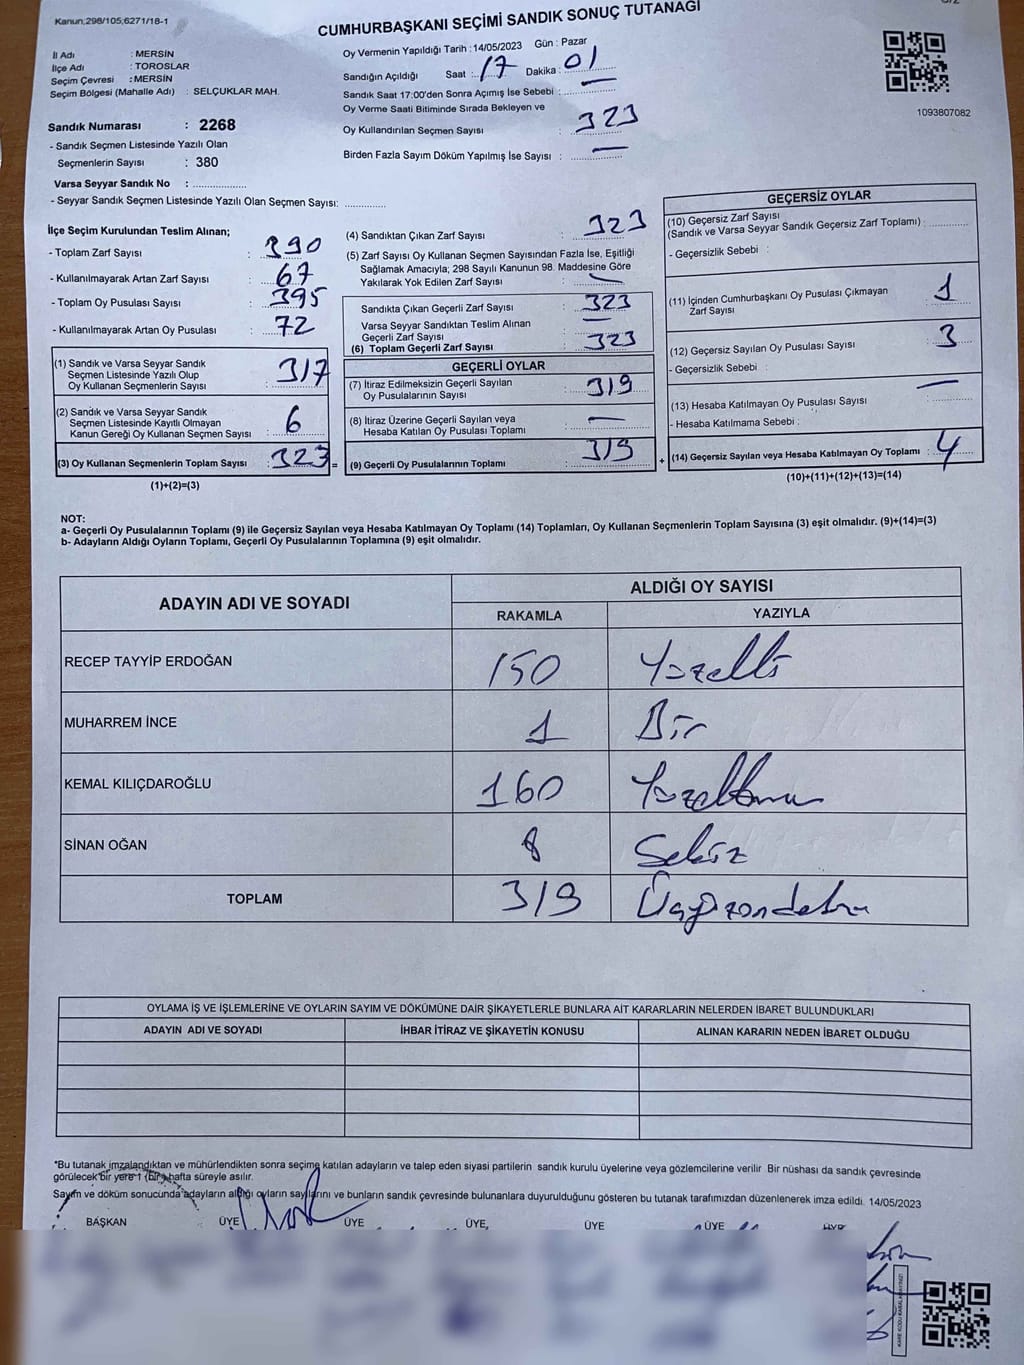 Kanun;298/105;6271/18-1
CUMHURBAŞKANI SEÇİMİ SANDIK SONUÇ TUTANAĞI
İl Adı : MERSİN
İlçe Adı : TOROSLAR
Seçim Çevresi : MERSİN
Seçim Bölgesi (Mahalle Adı) : SELÇUKLAR MAH.
Sandık Numarası : 2268
- Sandık Seçmen Listesinde Yazılı Olan
Seçmenlerin Sayısı : 380
Varsa Seyyar Sandık No : ..................
- Seyyar Sandık Seçmen Listesinde Yazılı Olan Seçmen Sayısı: ..............
Oy Vermenin Yapıldığı Tarih : 14/05/2023 Gün : Pazar
Sandığın Açıldığı Saat : 17 Dakika : 01
Sandık Saat 17:00'den Sonra Açımış İse Sebebi : —
Oy Verme Saati Bitiminde Sırada Bekleyen ve
Oy Kullandırılan Seçmen Sayısı : 323
Birden Fazla Sayım Döküm Yapılmış İse Sayısı : —
1093807082
İlçe Seçim Kurulundan Teslim Alınan;
- Toplam Zarf Sayısı : 390
- Kullanılmayarak Artan Zarf Sayısı : 67
- Toplam Oy Pusulası Sayısı : 395
- Kullanılmayarak Artan Oy Pusulası : 72
(1) Sandık ve Varsa Seyyar Sandık
Seçmen Listesinde Yazılı Olup
Oy Kullanan Seçmenlerin Sayısı : 317
(2) Sandık ve Varsa Seyyar Sandık
Seçmen Listesinde Kayıtlı Olmayan
Kanun Gereği Oy Kullanan Seçmen Sayısı : 6
(3) Oy Kullanan Seçmenlerin Toplam Sayısı : 323 =
(1)+(2)=(3)
(4) Sandıktan Çıkan Zarf Sayısı : 323
(5) Zarf Sayısı Oy Kullanan Seçmen Sayısından Fazla İse, Eşitliği
Sağlamak Amacıyla; 298 Sayılı Kanunun 98. Maddesine Göre
Yakılarak Yok Edilen Zarf Sayısı : —
Sandıkta Çıkan Geçerli Zarf Sayısı : 323
Varsa Seyyar Sandıktan Teslim Alınan
Geçerli Zarf Sayısı :
(6) Toplam Geçerli Zarf Sayısı : 323
GEÇERLİ OYLAR
(7) İtiraz Edilmeksizin Geçerli Sayılan
Oy Pusulalarının Sayısı : 319
(8) İtiraz Üzerine Geçerli Sayılan veya
Hesaba Katılan Oy Pusulası Toplamı : —
(9) Geçerli Oy Pusulalarının Toplamı : 319 +
GEÇERSİZ OYLAR
(10) Geçersiz Zarf Sayısı
(Sandık ve Varsa Seyyar Sandık Geçersiz Zarf Toplamı) : ..............
- Geçersizlik Sebebi :
(11) İçinden Cumhurbaşkanı Oy Pusulası Çıkmayan
Zarf Sayısı : 1
(12) Geçersiz Sayılan Oy Pusulası Sayısı : 3
- Geçersizlik Sebebi :
(13) Hesaba Katılmayan Oy Pusulası Sayısı : —
- Hesaba Katılmama Sebebi :
(14) Geçersiz Sayılan veya Hesaba Katılmayan Oy Toplamı : 4
(10)+(11)+(12)+(13)=(14)
NOT:
a- Geçerli Oy Pusulalarının Toplamı (9) ile Geçersiz Sayılan veya Hesaba Katılmayan Oy Toplamı (14) Toplamları, Oy Kullanan Seçmenlerin Toplam Sayısına (3) eşit olmalıdır. (9)+(14)=(3)
b- Adayların Aldığı Oyların Toplamı, Geçerli Oy Pusulalarının Toplamına (9) eşit olmalıdır.
ADAYIN ADI VE SOYADI ALDIĞI OY SAYISI
RAKAMLA YAZIYLA
RECEP TAYYİP ERDOĞAN 150 Yüzelli
MUHARREM İNCE 1 Bir
KEMAL KILIÇDAROĞLU 160 Yüzaltmış
SİNAN OĞAN 8 Sekiz
TOPLAM 319 Üçyüzondokuz
OYLAMA İŞ VE İŞLEMLERİNE VE OYLARIN SAYIM VE DÖKÜMÜNE DAİR ŞİKAYETLERLE BUNLARA AİT KARARLARIN NELERDEN İBARET BULUNDUKLARI
ADAYIN ADI VE SOYADI İHBAR İTİRAZ VE ŞİKAYETİN KONUSU ALINAN KARARIN NEDEN İBARET OLDUĞU
*Bu tutanak imzalandıktan ve mühürlendikten sonra seçime katılan adayların ve talep eden siyasi partilerin sandık kurulu üyelerine veya gözlemcilerine verilir Bir nüshası da sandık çevresinde
görülecek bir yere 1 (bir) hafta süreyle asılır.
Sayım ve döküm sonucunda adayların aldığı oyların sayılarını ve bunların sandık çevresinde bulunanlara duyurulduğunu gösteren bu tutanak tarafımızdan düzenlenerek imza edildi. 14/05/2023
BAŞKAN ÜYE ÜYE ÜYE, ÜYE ÜYE ÜYE